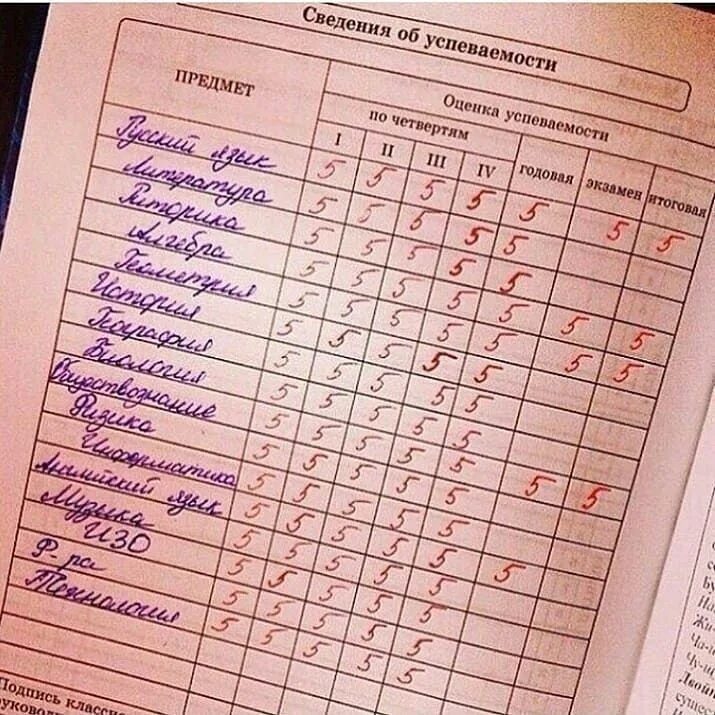 Сведения об успеваемости
ПРЕДМЕТ
Оценка успеваемости
по четвертям
I II III IV годовая экзамен итоговая
Русский язык 5 5 5 5 5 5 5
Литература 5 5 5 5 5
Риторика 5 5 5 5 5
Алгебра 5 5 5 5 5 5 5
Геометрия 5 5 5 5 5 5 5
История 5 5 5 5 5
География 5 5 5 5 5
Биология 5 5 5 5 5
Обществознание 5 5 5 5 5
Физика 5 5 5 5 5 5 5
Информатика 5 5 5 5 5
Английский язык 5 5 5 5 5
Музыка 5 5 5 5
ИЗО 5 5 5 5 5
Ф-ра 5 5 5 5 5
Технология 5 5 5 5 5
Подпись